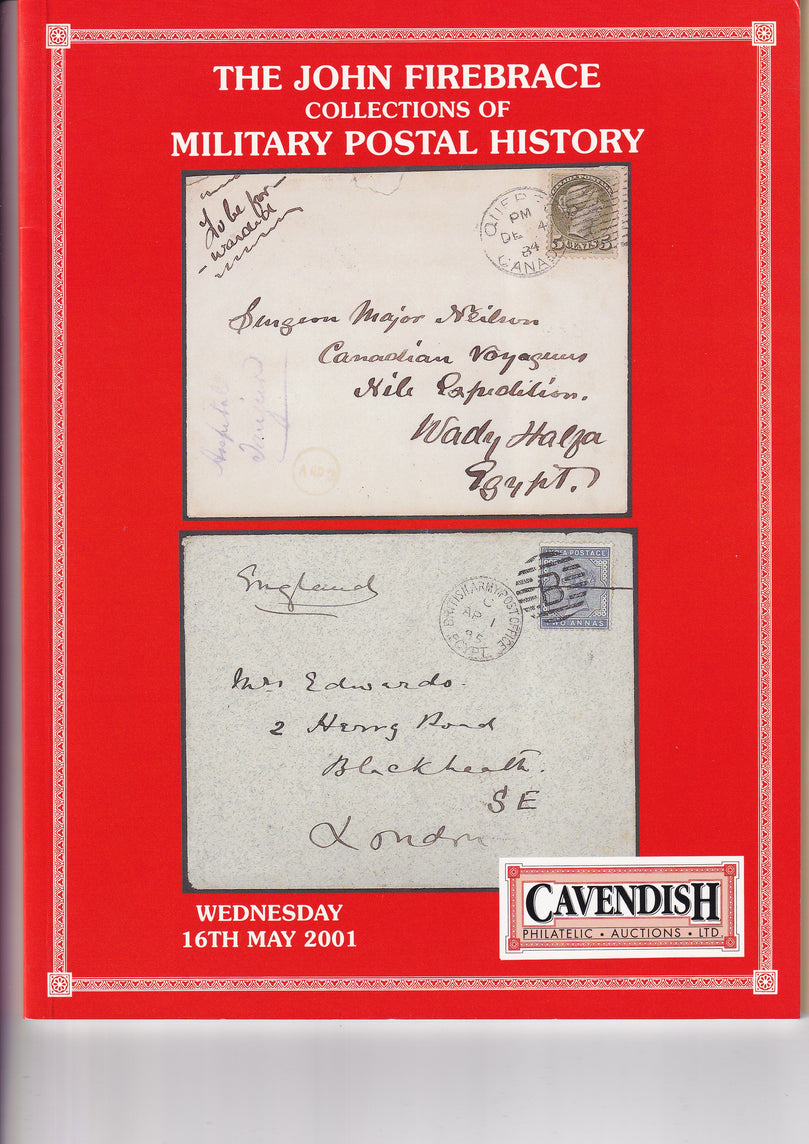 THE JOHN FIREBRACE
COLLECTIONS OF
MILITARY POSTAL HISTORY
To be for-
-warded
QUEBEC
PM
DE 4
84
CANADA
5 CENTS 5
Surgeon Major Neilson
Canadian Voyageurs
Nile Expedition.
Wady Halfa
Egypt.
England
BRITISH ARMY POST OFFICE
C
AP 1
85
EGYPT
INDIA POSTAGE
B
TWO ANNAS
Mrs Edwards
2 Road
Blackheath.
SE
London
WEDNESDAY
16TH MAY 2001
CAVENDISH
PHILATELIC • AUCTIONS • LTD.